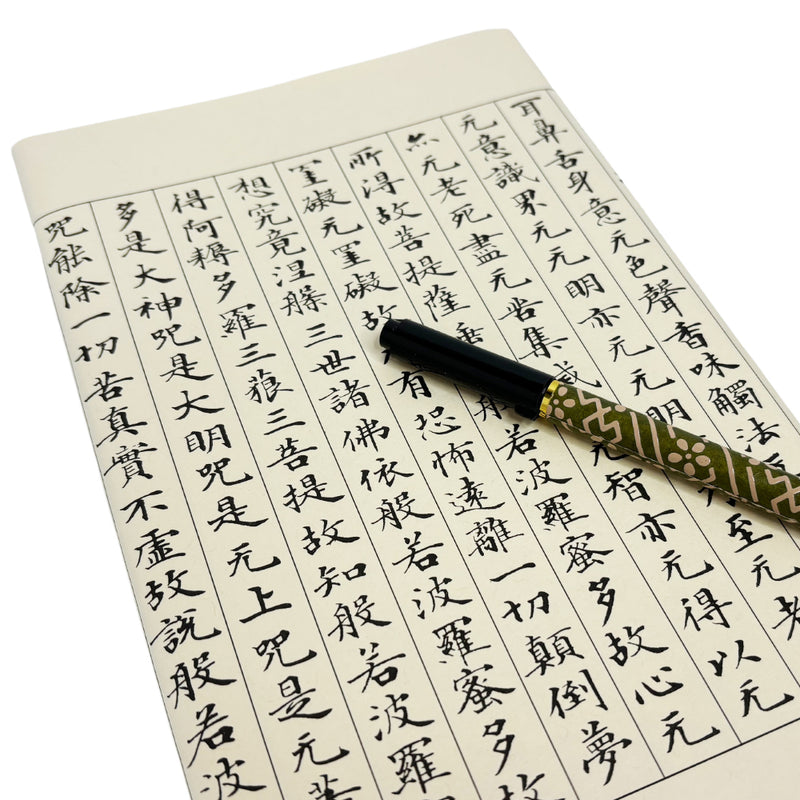 耳鼻舌身意无色聲香味觸法
无意識界无无明亦无无明至无老
亦无老死盡无苦集无智亦无得以无
所得故菩提薩埵般若波羅蜜多故心无
罣礙无罣礙故有恐怖遠離一切顛倒夢
想究竟涅槃三世諸佛依般若波羅蜜多故
得阿耨多羅三藐三菩提故知般若波羅
多是大神咒是大明咒是无上咒是无等
咒能除一切苦真實不虛故說般若波